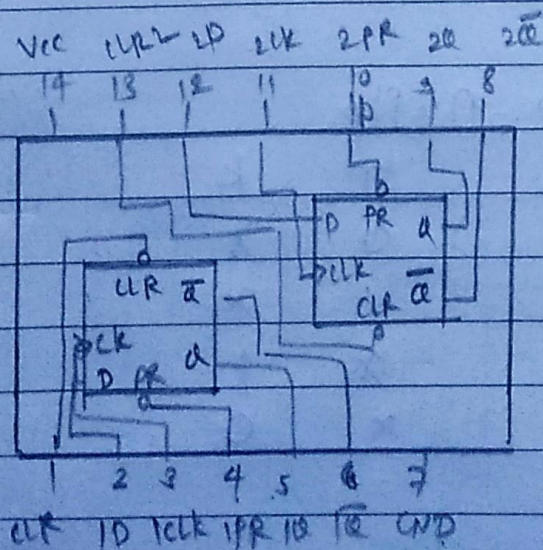 Vcc CLR2 2D 2CLK 2PR 2Q 2Q̅
14 13 12 11 10 9 8
D PR Q
CLK
CLR Q̅
CLR Q̅
CK
Q
D PR
1 2 3 4 5 6 7
CLR 1D 1CLK 1PR 1Q 1Q̅ GND